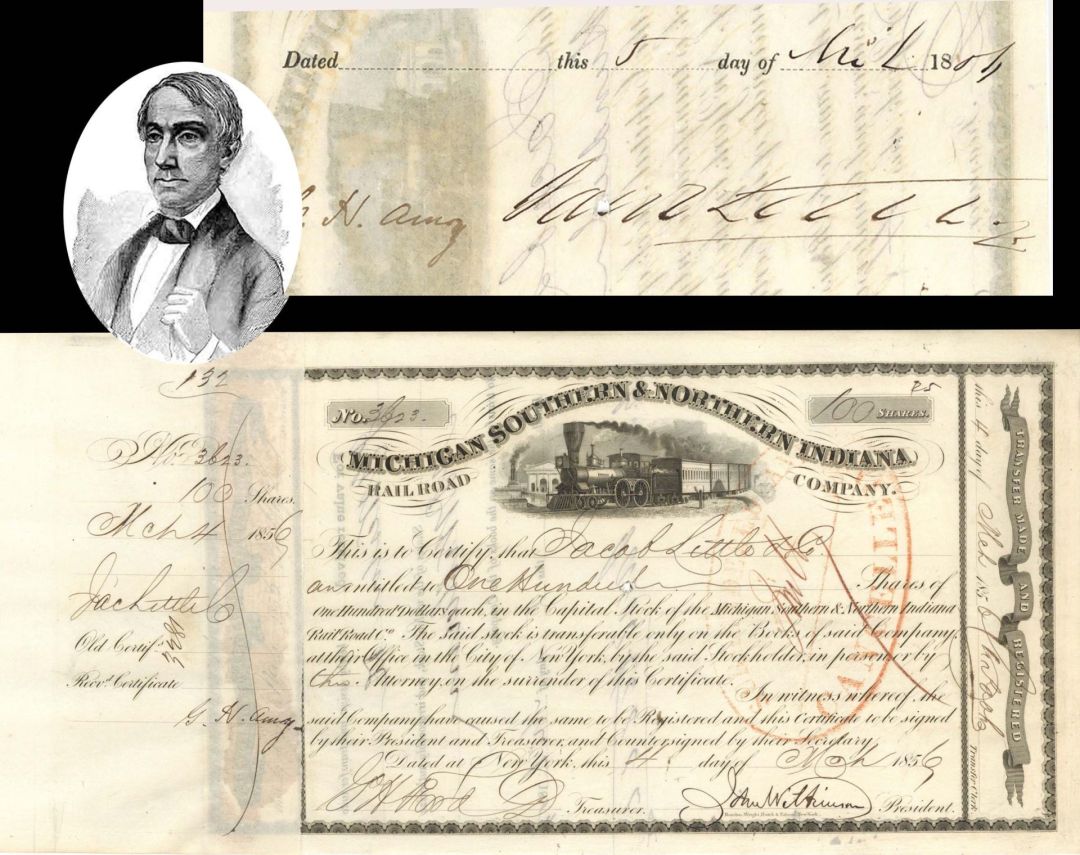 Dated this 5 day of 18
H. Amy
132
No. 3623.
100 Shares.
Mch 4 1856
Jac Little & Co
Old Certif. 3281
Recv.d Certificate
G. H. Amy
No. 3623.
100 SHARES.
MICHIGAN SOUTHERN & NORTHERN INDIANA
RAILROAD COMPANY.
This is to Certify, that Jacob Little & Co
are entitled to One Hundred Shares of
One Hundred Dollars each, in the Capital Stock of the Michigan Southern & Northern Indiana
Rail Road Co. The said stock is transferable only on the Books of said Company,
at their Office in the City of New York, by the said Stockholder, in person or by
Attorney, on the surrender of this Certificate.
In witness whereof, the
said Company have caused the same to be Registered and this Certificate to be signed
by their President and Treasurer, and Countersigned by their Secretary.
Dated at New York, this 4 day of Mch 1856
Treasurer. John Wilkinson President.
CANCELLED
this 4 day of Mch 1856
TRANSFER MADE AND REGISTERED